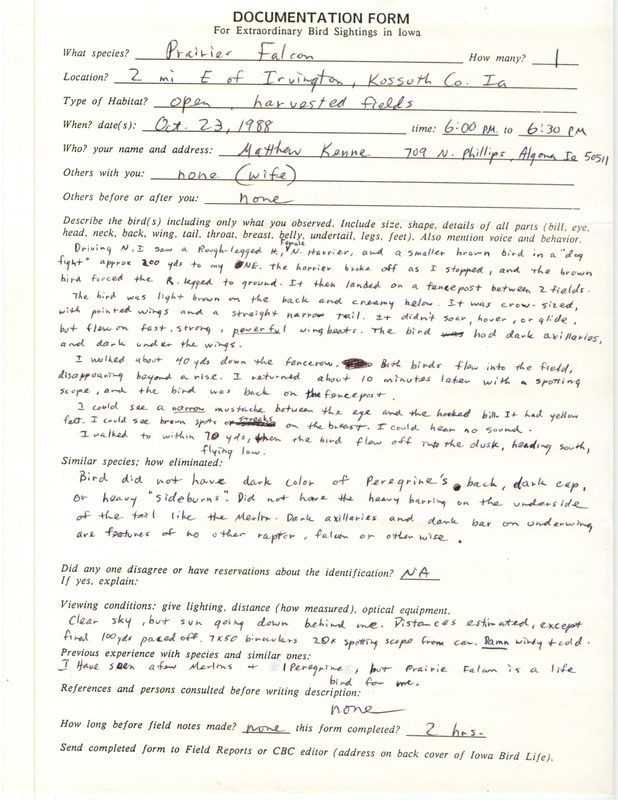 DOCUMENTATION FORM
For Extraordinary Bird Sightings in Iowa
What species? Prairier Falcon How many? 1
Location? 2 mi E of Irvington, Kossuth Co. Ia
Type of Habitat? open, harvested fields
When? date(s): Oct. 23, 1988 time: 6:00 PM. to 6:30 PM
Who? your name and address: Matthew Kenne 709 N. Phillips, Algona Ia 50511
Others with you: none (wife)
Others before or after you: none
Describe the bird(s) including only what you observed. Include size, shape, details of all parts (bill, eye,
head, neck, back, wing, tail, throat, breast, belly, undertail, legs, feet). Also mention voice and behavior.
Driving N, I saw a Rough-legged H, Female N. Harrier, and a smaller brown bird in a "dog
fight" approx 200 yds to my NE. The harrier broke off as I stopped, and the brown
bird forced the R. legged to ground. It then landed on a fencepost between 2 fields.
The bird was light brown on the back and creamy below. It was crow-sized,
with pointed wings and a straight narrow tail. It didn't soar, hover, or glide,
but flew on fast, strong, powerful wingbeats. The bird was had dark axillaries,
and dark under the wings.
I walked about 40 yds down the fencerow. Both birds flew into the field,
disappearing beyond a rise. I returned about 10 minutes later with a spotting
scope, and the bird was back on the fencepost.
I could see a narrow mustache between the eye and the hooked bill. It had yellow
feet. I could see brown spots or streaks on the breast. I could hear no sound.
I walked to within 70 yds, then the bird flew off into the dusk, heading south,
flying low.
Similar species; how eliminated:
Bird did not have dark color of Peregrine's back, dark cap,
or heavy "sideburns". Did not have the heavy barring on the underside
of the tail like the Merlin. Dark axilleries and dark bar on underwing
are features of no other raptor, falcon or other wise.
Did any one disagree or have reservations about the identification? NA
If yes, explain:
Viewing conditions: give lighting, distance (how measured), optical equipment.
Clear sky, but sun going down behind me. Distances estimated, except
final 100yds paced off. 7x50 binoculars 20x spotting scope from car. Damn windy + cold.
Previous experience with species and similar ones:
I Have seen a few Merlins + 1 Peregrine, but Prairie Falcon is a life
bird for me.
References and persons consulted before writing description:
none
How long before field notes made? none this form completed? 2 hrs.
Send completed form to Field Reports or CBC editor (address on back cover of Iowa Bird Life).